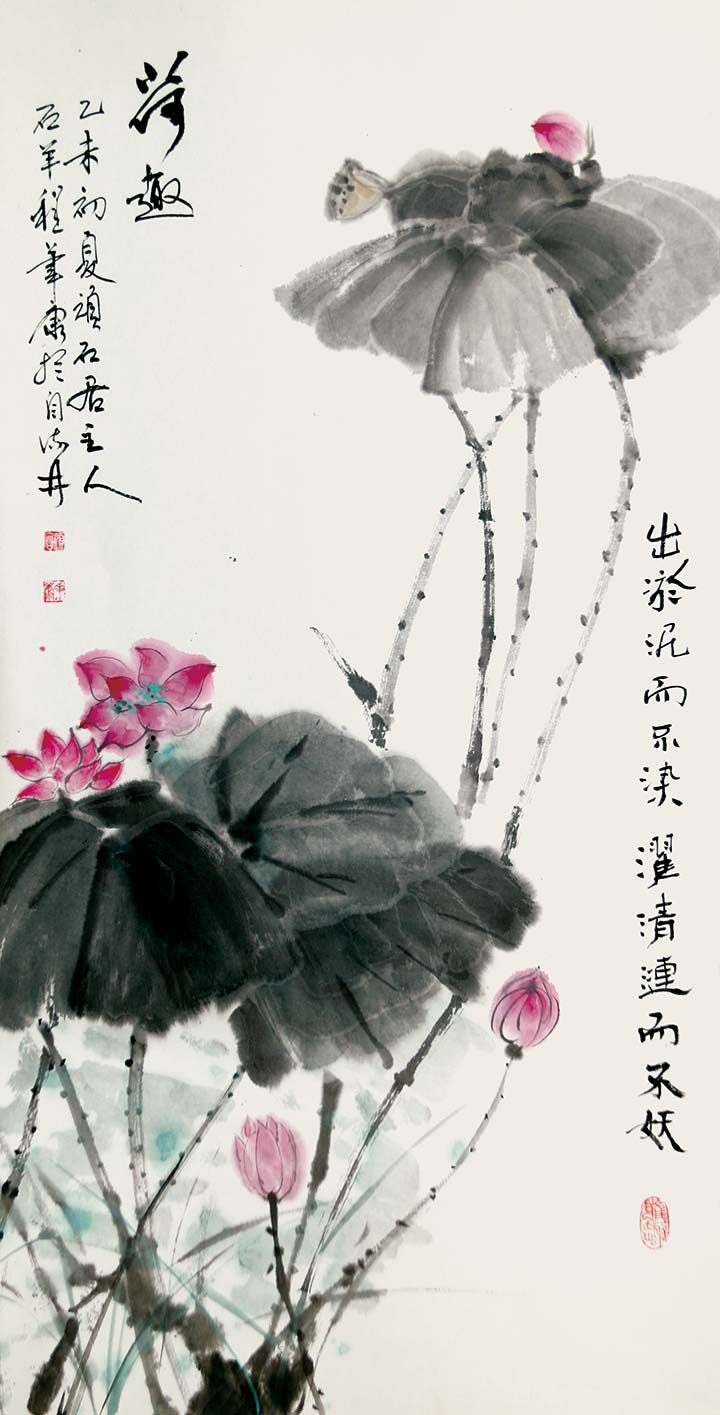 荷趣
乙未初夏顽石居主人
石羊程華康於自流井
出淤泥而不染 濯清漣而不妖